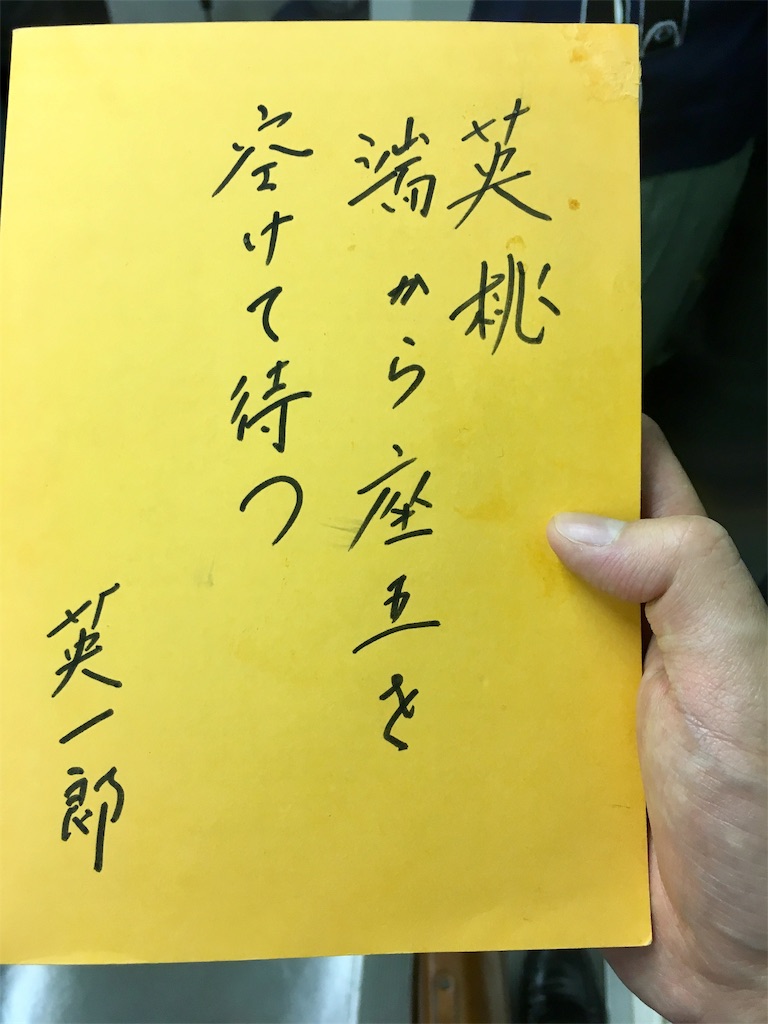 英桃
端から座五を
空けて待つ
英一郎